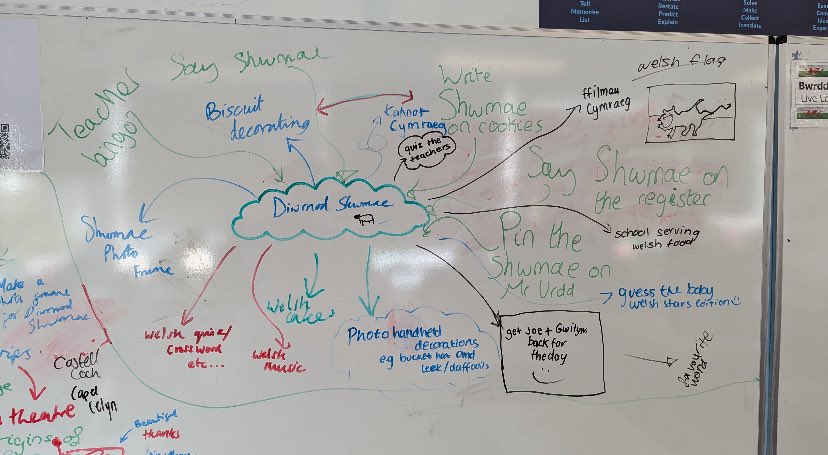 Tell
Memorise
List
Restate
Predict
Explain
Solve
Make
Collect
Translate
Bwrdd
Live
Teacher
bingo!
Say Shwmae
Biscuit
decorating
Kahoot
Cymraeg
Write
Shwmae
on cookies
quiz the
teachers
ffilmau
Cymraeg
welsh flag
Say Shwmae on
the register
school serving
welsh food
Diwrnod Shwmae
Pin the
Shwmae on
Mr Urdd
guess the baby
welsh stars edition
Shwmae
Photo
Frame
Welsh quiz/
Crossword
etc...
Welsh
Music
Welsh
cakes
Photo handheld
decorations
eg bucket hat and
leek/daffodils
get Joe + Gwilym
back for
the day
favourite
word
Make a
photo frame
for Diwrnod
Shwmae
Castell
Coch
Capel
Celyn
theatre
origins of
Beautiful
thanks